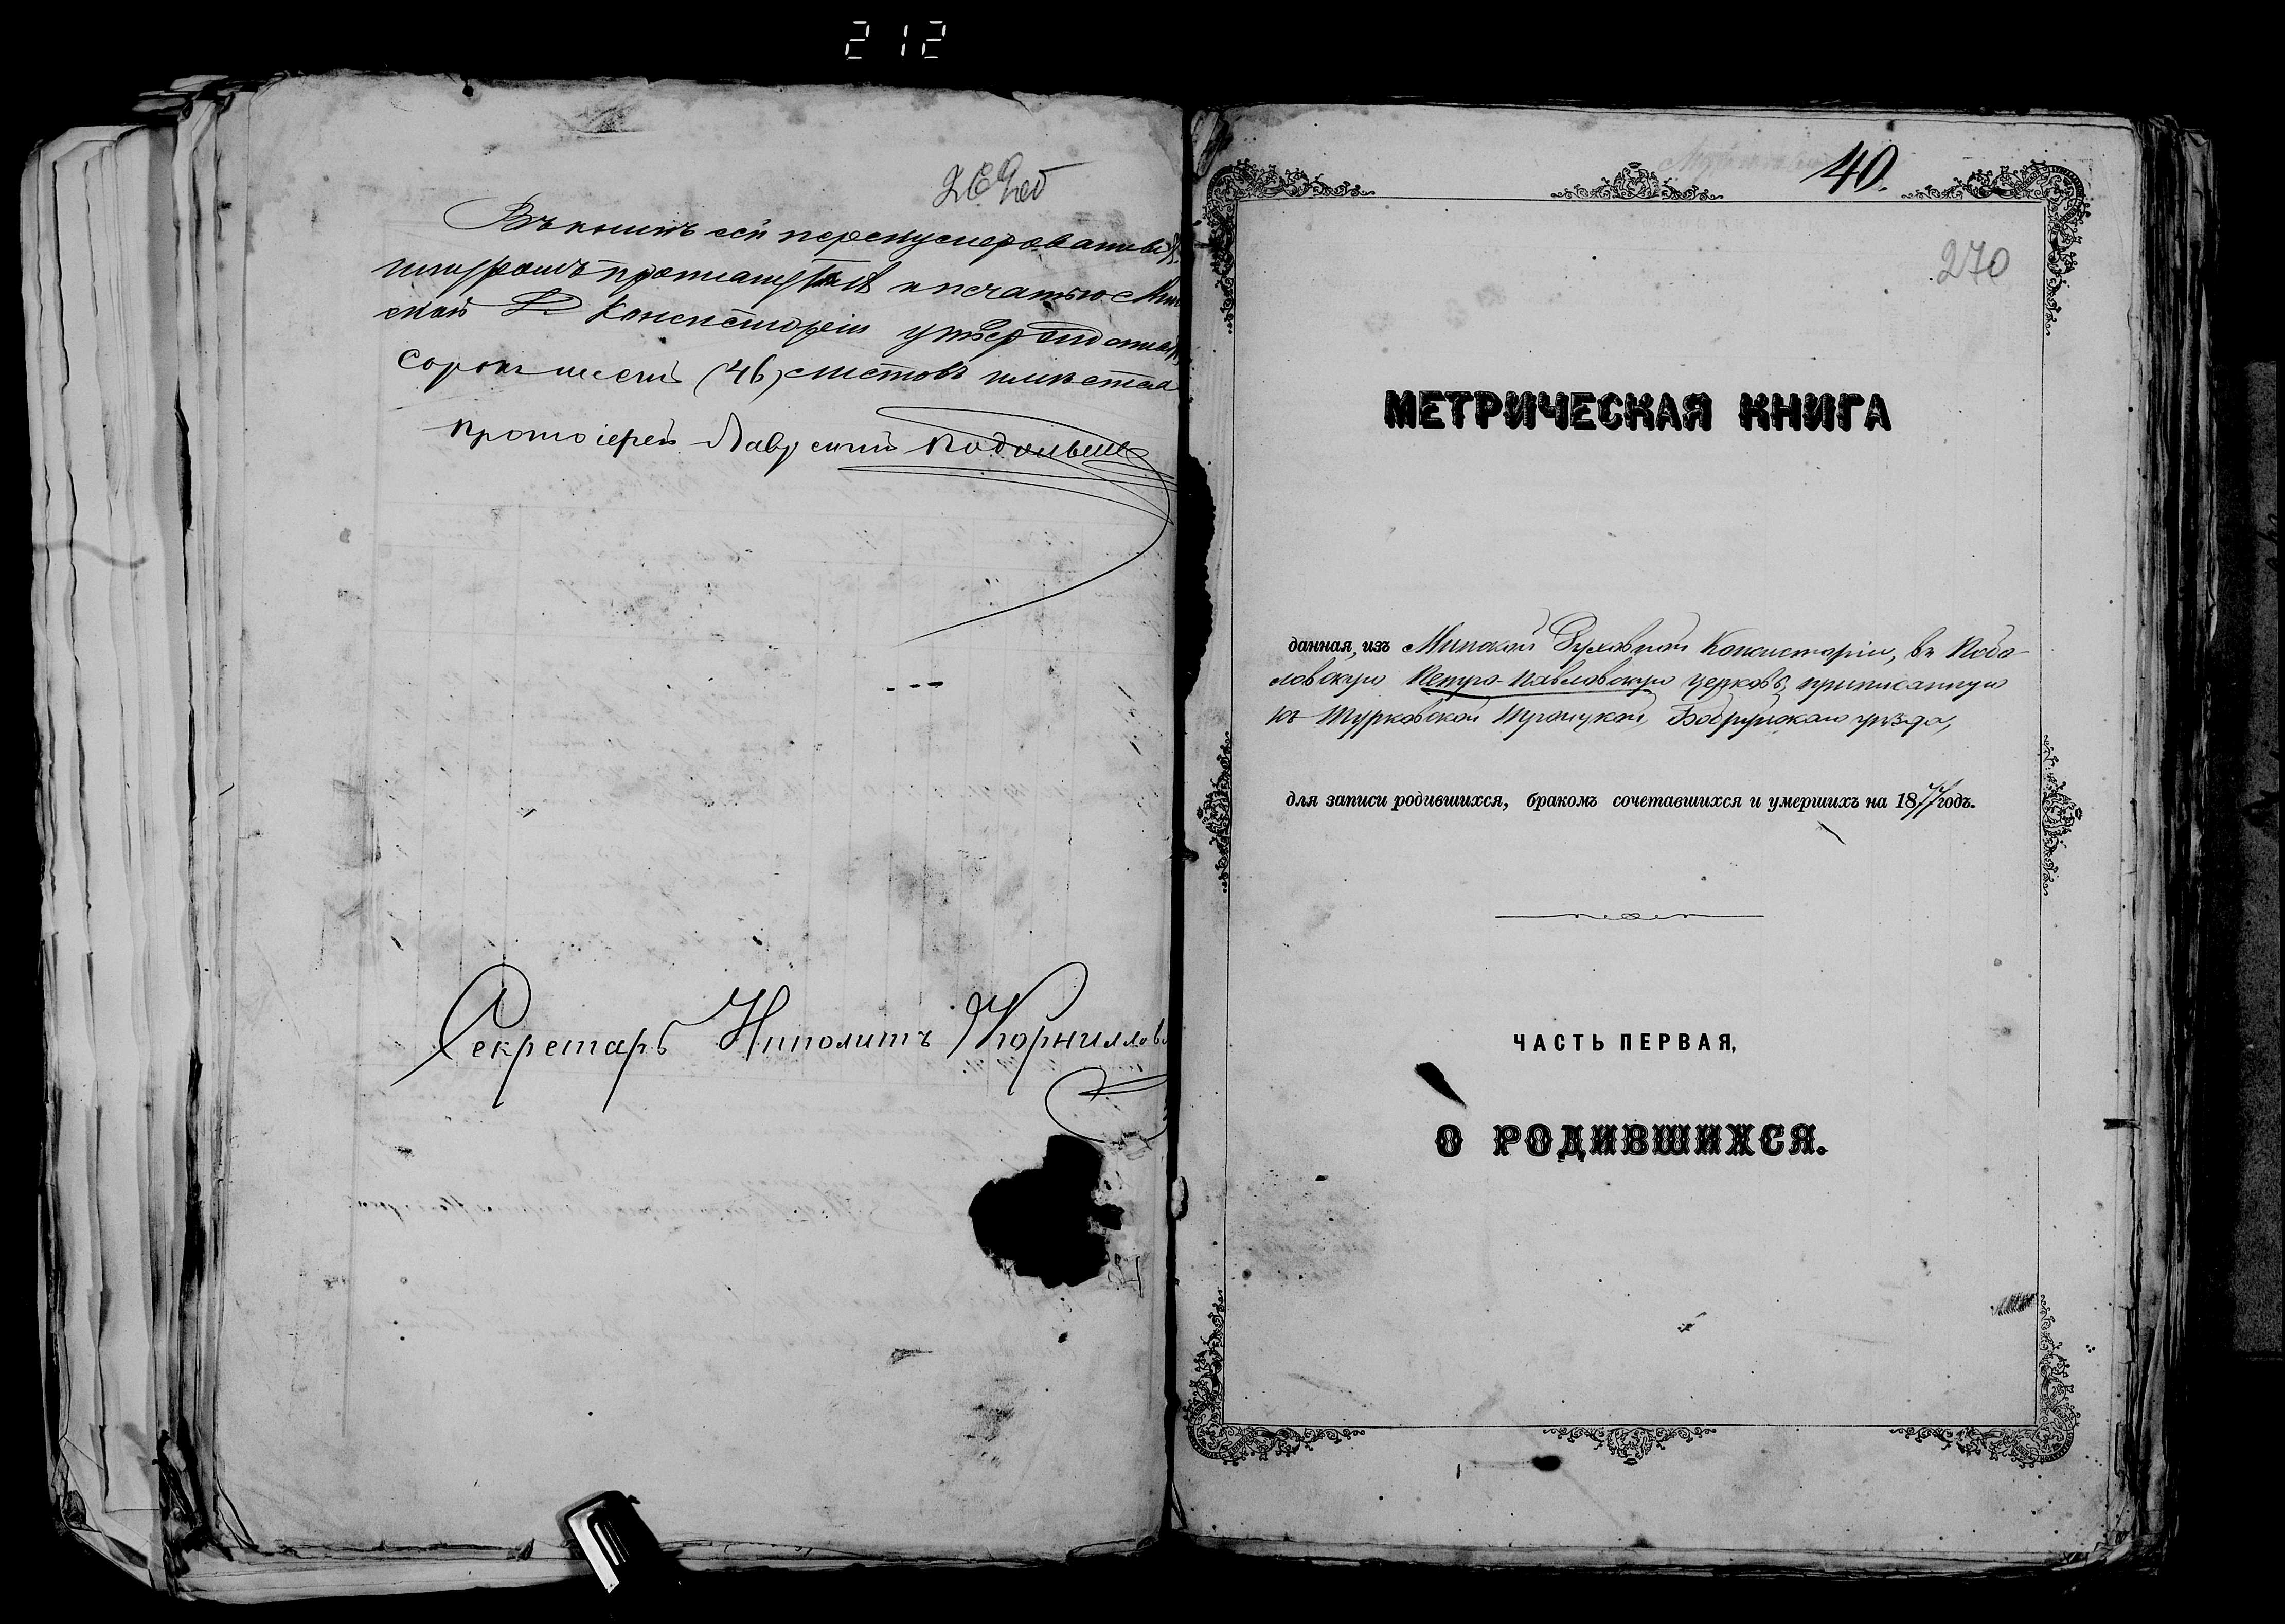 212
269об
Въ книгѣ сей перенумерованныхъ
шнуромъ и печатью Мин
ской Д Консисторіи
сорокъ шесть (46) листовъ
протоіерей
Секретарь Ипполитъ Корнилов
40.
270
МЕТРИЧЕСКАЯ КНИГА
данная, изъ Минской Духовной Консисторіи, въ Кобы-
ловскую Петро-Павловскую церковь, приписанную
къ Турковской Троицкой, Бобруйскаго уѣзда,
для записи родившихся, бракомъ сочетавшихся и умершихъ на 1877 годъ.
ЧАСТЬ ПЕРВАЯ,
О РОДИВШИХСЯ.